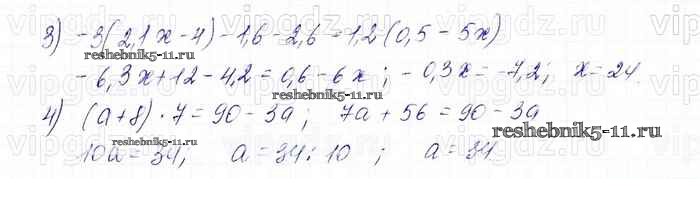 3) -3(2,1x-4)-1,6-2,6=1,2(0,5-5x)
reshebnik5-11.ru
-6,3x+12-4,2=0,6-6x; -0,3x=-7,2; x=24.
reshebnik5-11.ru
4) (a+8)·7=90-3a; 7a+56=90-3a
reshebnik5-11.ru
reshebnik5-11.ru
10a=34; a=34:10; a=34